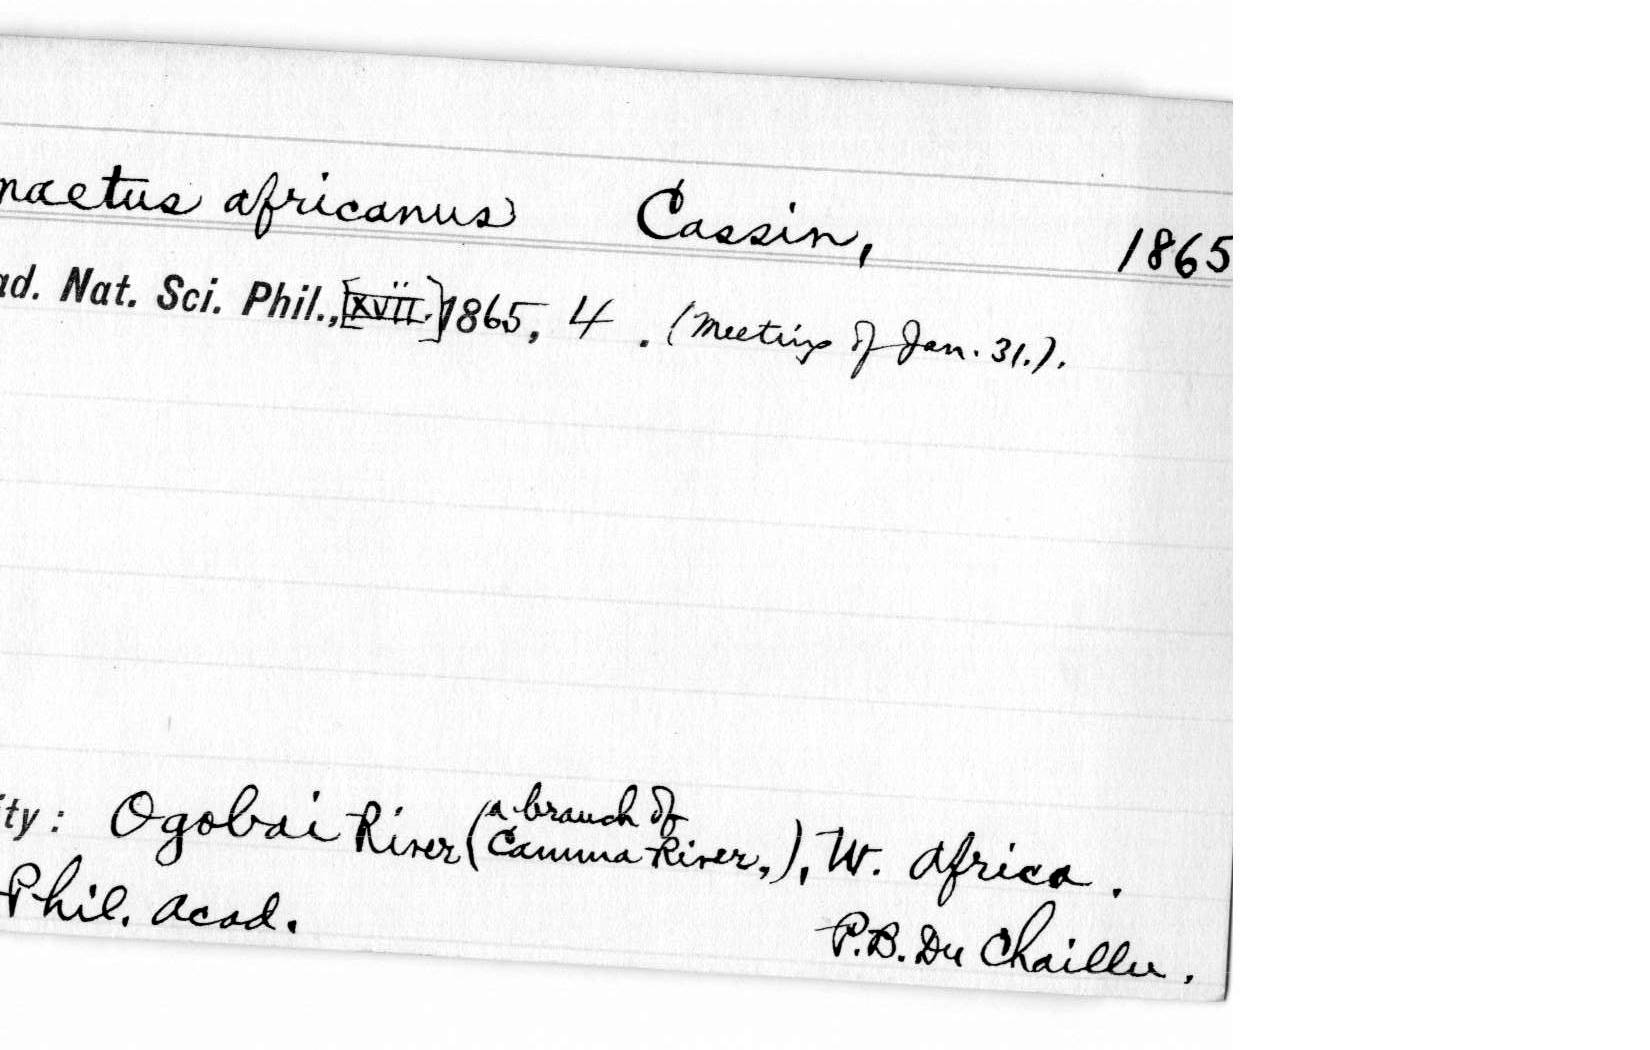 naetus africanus Cassin, 1865
ad. Nat. Sci. Phil., [XVII.] 1865, 4. (Meeting of Jan. 31.).
ity: Ogobai River (a branch of Camma River,), W. Africa.
Phil. Acad.
P.B. Du Chaillu.